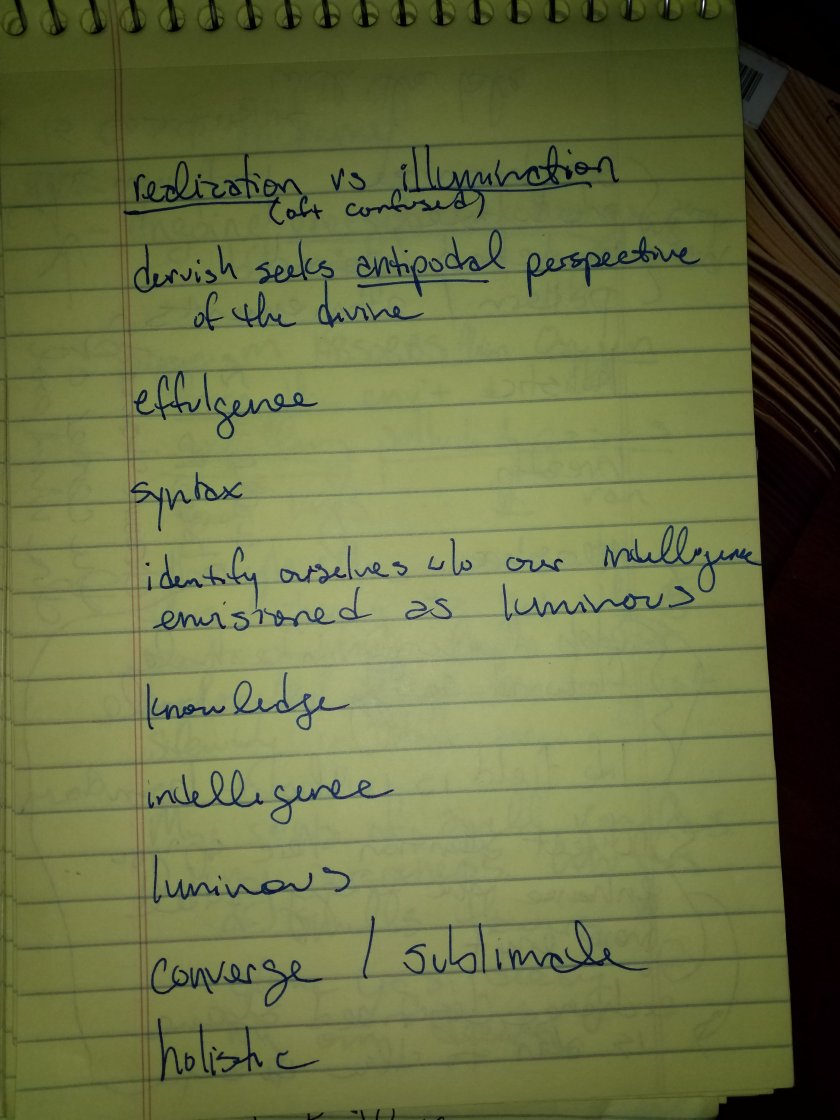 realization vs illumination
(oft confused)
dervish seeks antipodal perspective
of the divine
effulgence
syntax
identify ourselves w/o our intelligence
envisioned as luminous
knowledge
intelligence
luminous
converge / sublimate
holistic